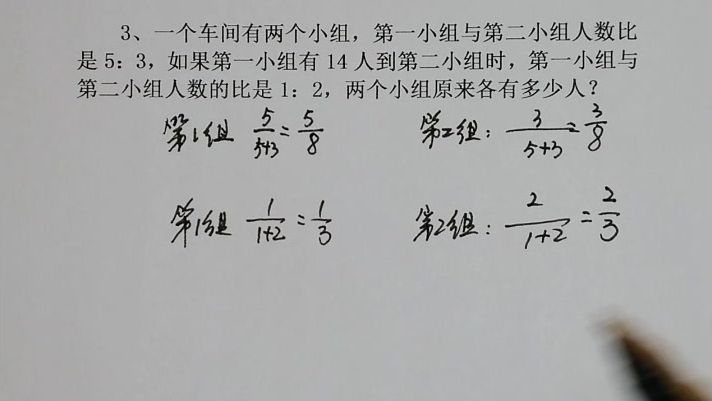 3、一个车间有两个小组，第一小组与第二小组人数比
是 5：3，如果第一小组有 14 人到第二小组时，第一小组与
第二小组人数的比是 1：2，两个小组原来各有多少人？
第1组 5/5+3=5/8 第2组：3/5+3=3/8
第1组 1/1+2=1/3 第2组：2/1+2=2/3